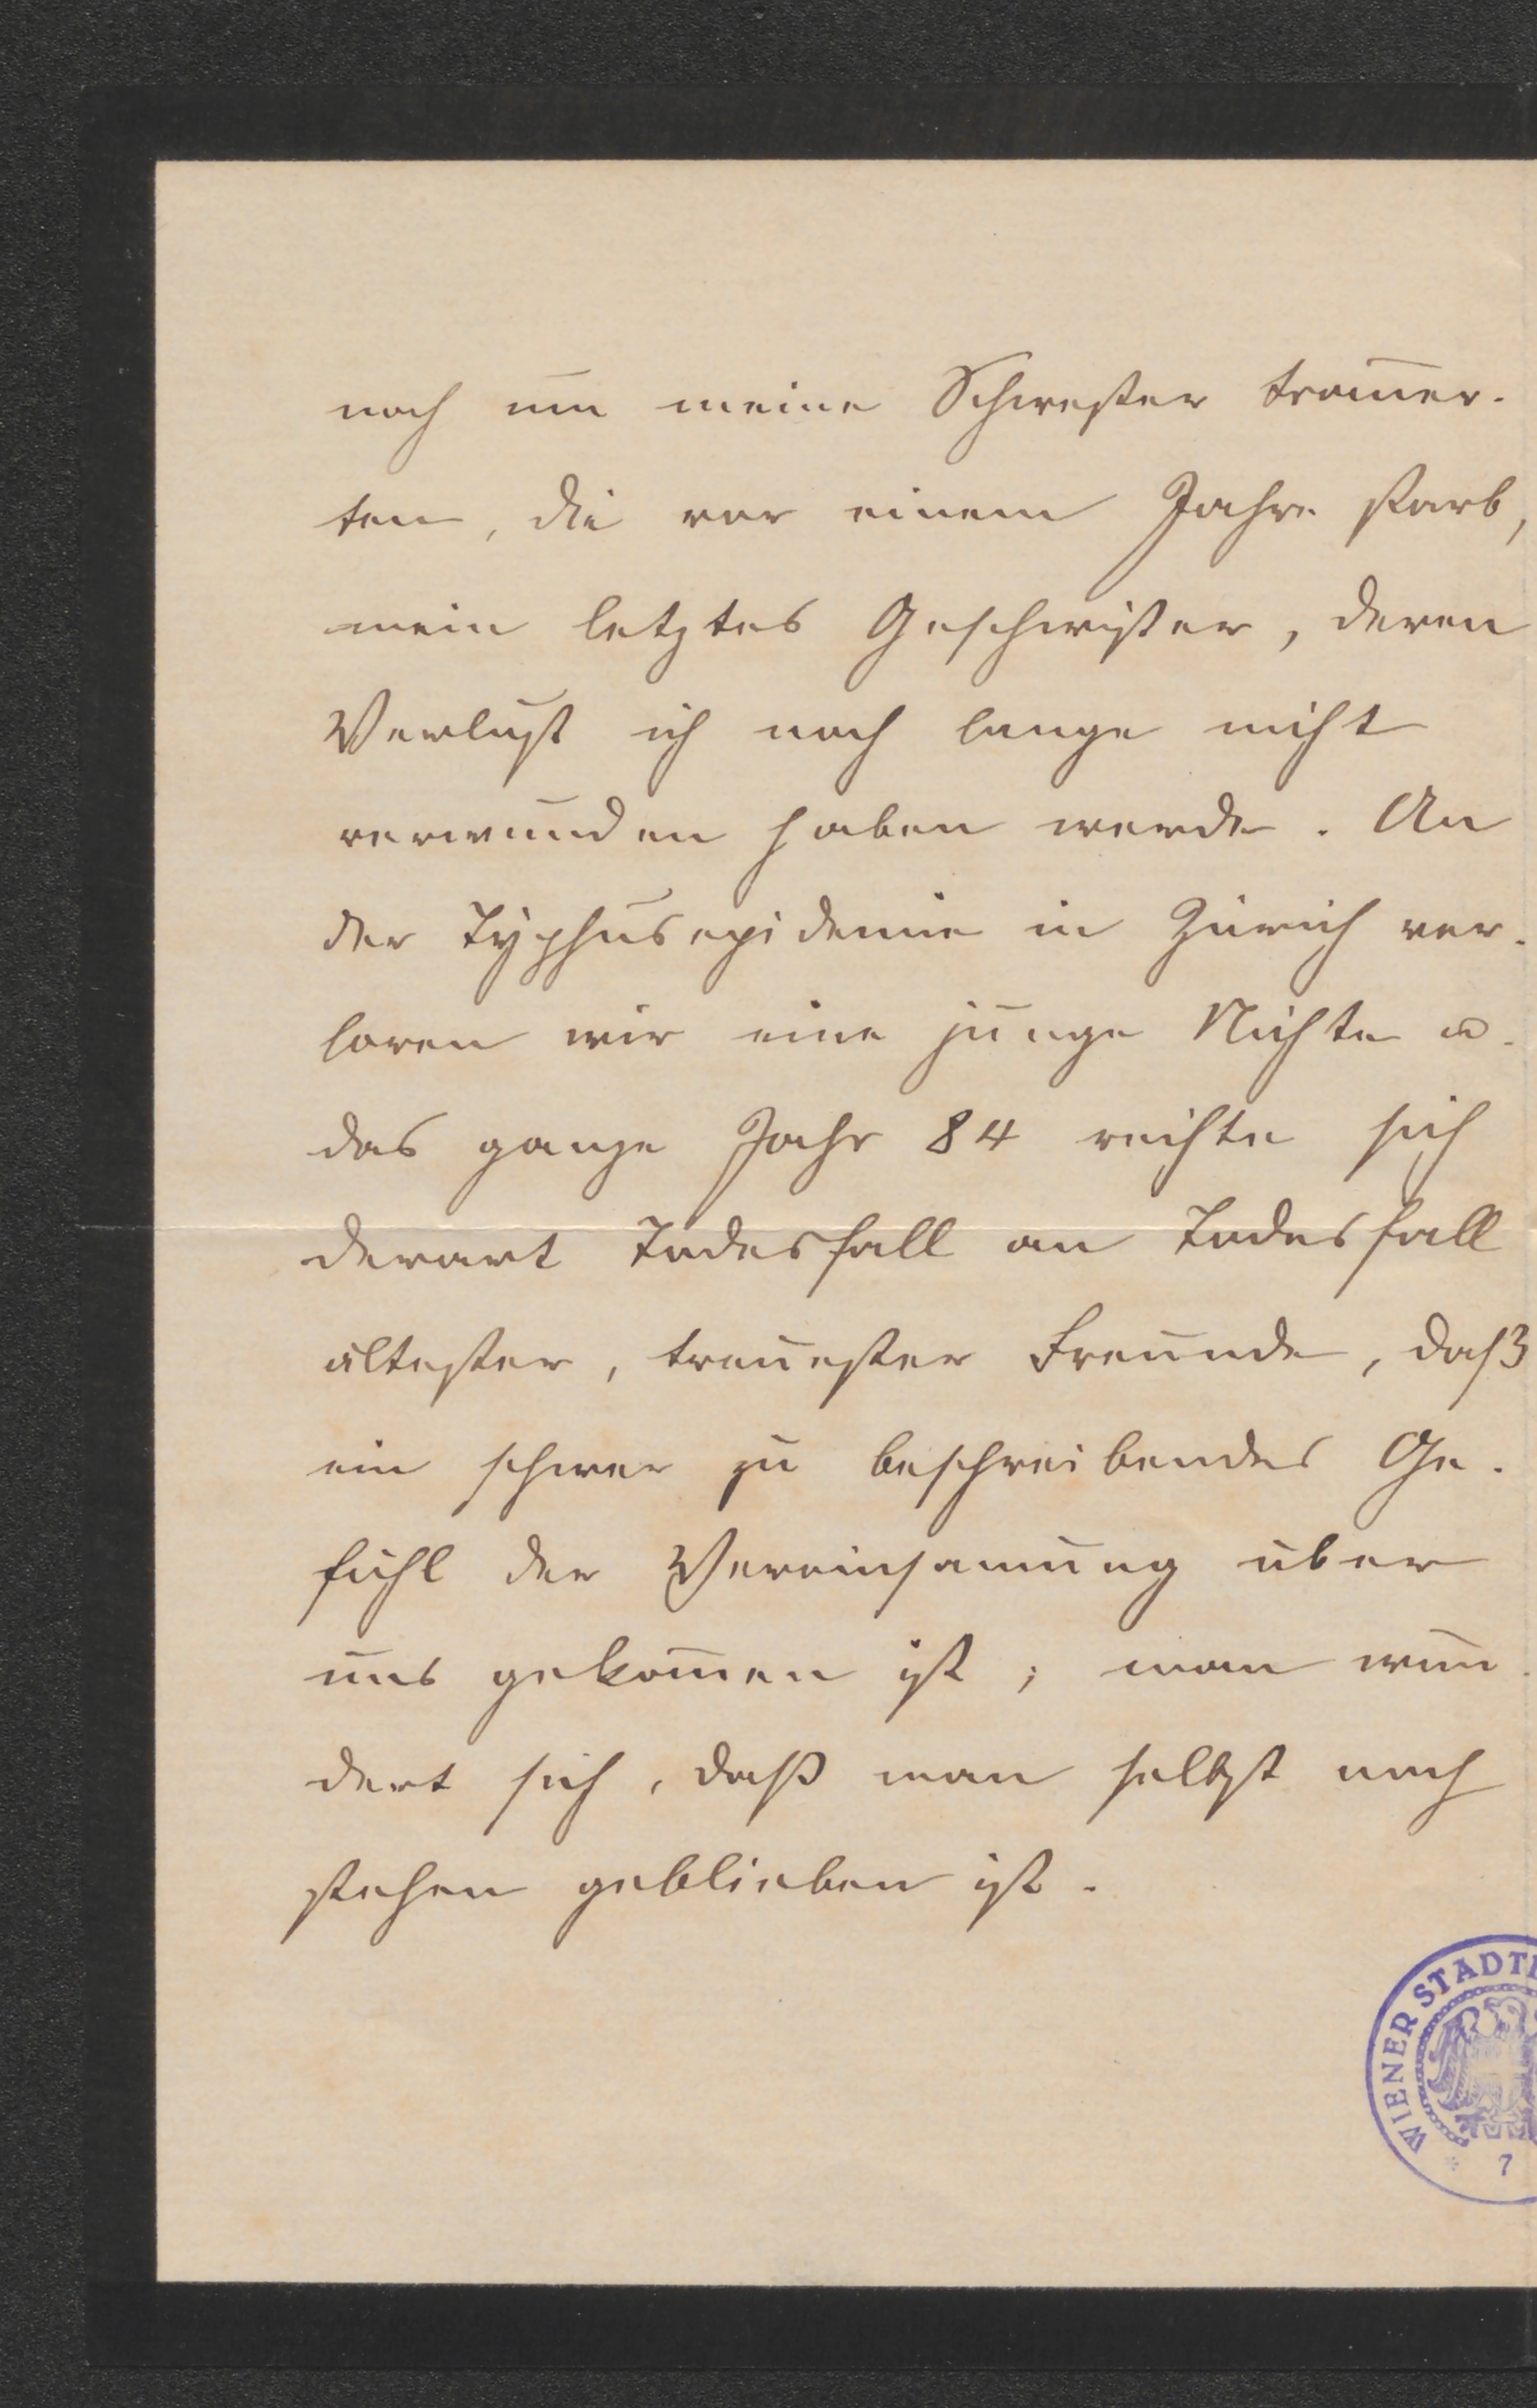 noch um meine Schwester trauer-
ten, die vor einem Jahre starb,
mein letztes Geschwister, deren
Verlust ich noch lange nicht
verwunden haben werde. An
der Typhusepidemie in Zürich ver-
loren wir eine junge Nichte u.
das ganze Jahr 84 reihte sich
derart Todesfall an Todesfall
ältester, treuester Freunde, daß
ein schwer zu beschreibendes Ge-
fühl der Vereinsamung über
uns gekom̄en ist; man wun-
dert sich, daß man selbst noch
stehen geblieben ist.
WIENER STADT
7